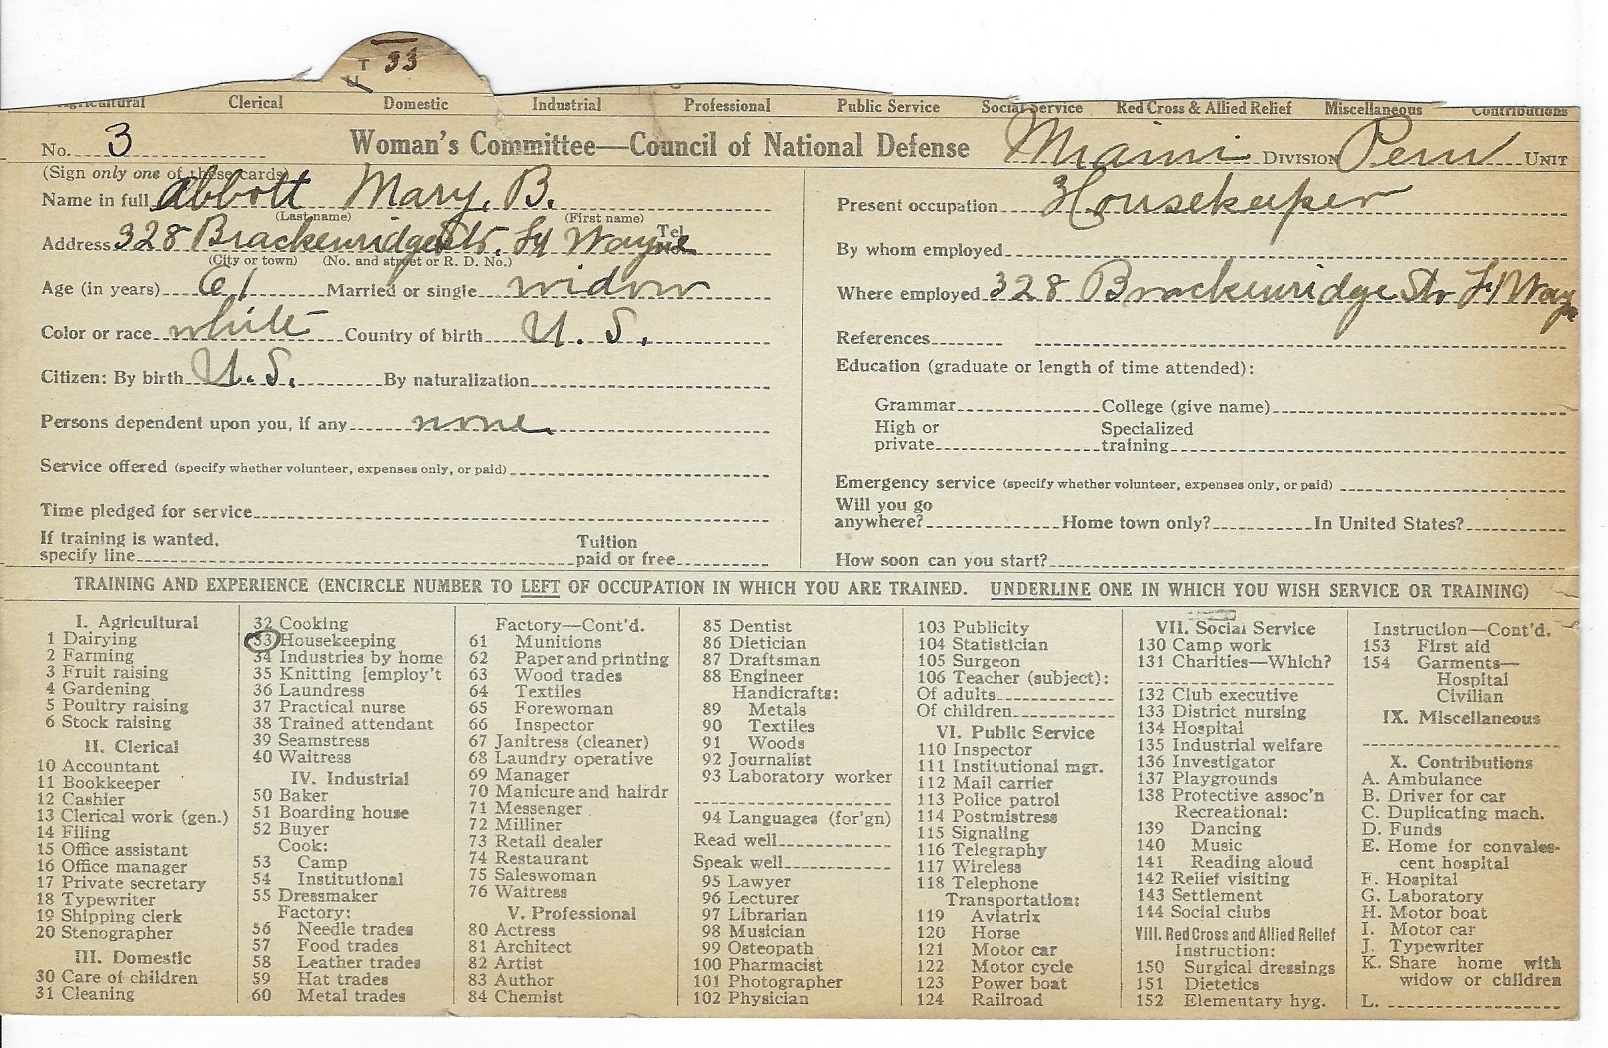 T 33
U
Agricultural Clerical Domestic Industrial Professional Public Service Social Service Red Cross & Allied Relief Miscellaneous Contributions
No. 3 Woman's Committee—Council of National Defense Miami DIVISION Peru UNIT
(Sign only one of these cards)
Name in full Abbott Mary. B.
(Last name) (First name)
Address 328 Brackenridge Str. Ft Wayne Tel.
(City or town) (No. and street or R. D. No.)
Age (in years) 61 Married or single widow
Color or race white Country of birth U. S.
Citizen: By birth U.S. By naturalization
Persons dependent upon you, if any none
Service offered (specify whether volunteer, expenses only, or paid)
Time pledged for service
If training is wanted, specify line Tuition paid or free
Present occupation Housekeeper
By whom employed
Where employed 328 Brackenridge Str Ft Wayne
References
Education (graduate or length of time attended):
Grammar College (give name)
High or private Specialized training
Emergency service (specify whether volunteer, expenses only, or paid)
Will you go anywhere? Home town only? In United States?
How soon can you start?
TRAINING AND EXPERIENCE (ENCIRCLE NUMBER TO LEFT OF OCCUPATION IN WHICH YOU ARE TRAINED. UNDERLINE ONE IN WHICH YOU WISH SERVICE OR TRAINING)
I. Agricultural
1 Dairying
2 Farming
3 Fruit raising
4 Gardening
5 Poultry raising
6 Stock raising
II. Clerical
10 Accountant
11 Bookkeeper
12 Cashier
13 Clerical work (gen.)
14 Filing
15 Office assistant
16 Office manager
17 Private secretary
18 Typewriter
19 Shipping clerk
20 Stenographer
III. Domestic
30 Care of children
31 Cleaning
32 Cooking
33 Housekeeping
34 Industries by home
35 Knitting [employ't
36 Laundress
37 Practical nurse
38 Trained attendant
39 Seamstress
40 Waitress
IV. Industrial
50 Baker
51 Boarding house
52 Buyer
Cook:
53 Camp
54 Institutional
55 Dressmaker
Factory:
56 Needle trades
57 Food trades
58 Leather trades
59 Hat trades
60 Metal trades
Factory—Cont'd.
61 Munitions
62 Paper and printing
63 Wood trades
64 Textiles
65 Forewoman
66 Inspector
67 Janitress (cleaner)
68 Laundry operative
69 Manager
70 Manicure and hairdr
71 Messenger
72 Milliner
73 Retail dealer
74 Restaurant
75 Saleswoman
76 Waitress
V. Professional
80 Actress
81 Architect
82 Artist
83 Author
84 Chemist
85 Dentist
86 Dietician
87 Draftsman
88 Engineer
Handicrafts:
89 Metals
90 Textiles
91 Woods
92 Journalist
93 Laboratory worker
94 Languages (for'gn)
Read well
Speak well
95 Lawyer
96 Lecturer
97 Librarian
98 Musician
99 Osteopath
100 Pharmacist
101 Photographer
102 Physician
103 Publicity
104 Statistician
105 Surgeon
106 Teacher (subject):
Of adults
Of children
VI. Public Service
110 Inspector
111 Institutional mgr.
112 Mail carrier
113 Police patrol
114 Postmistress
115 Signaling
116 Telegraphy
117 Wireless
118 Telephone
Transportation:
119 Aviatrix
120 Horse
121 Motor car
122 Motor cycle
123 Power boat
124 Railroad
VII. Social Service
130 Camp work
131 Charities—Which?
132 Club executive
133 District nursing
134 Hospital
135 Industrial welfare
136 Investigator
137 Playgrounds
138 Protective assoc'n
Recreational:
139 Dancing
140 Music
141 Reading aloud
142 Relief visiting
143 Settlement
144 Social clubs
VIII. Red Cross and Allied Relief
Instruction:
150 Surgical dressings
151 Dietetics
152 Elementary hyg.
Instruction—Cont'd.
153 First aid
154 Garments—
Hospital
Civilian
IX. Miscellaneous
X. Contributions
A. Ambulance
B. Driver for car
C. Duplicating mach.
D. Funds
E. Home for convales-
cent hospital
F. Hospital
G. Laboratory
H. Motor boat
I. Motor car
J. Typewriter
K. Share home with
widow or children
L.